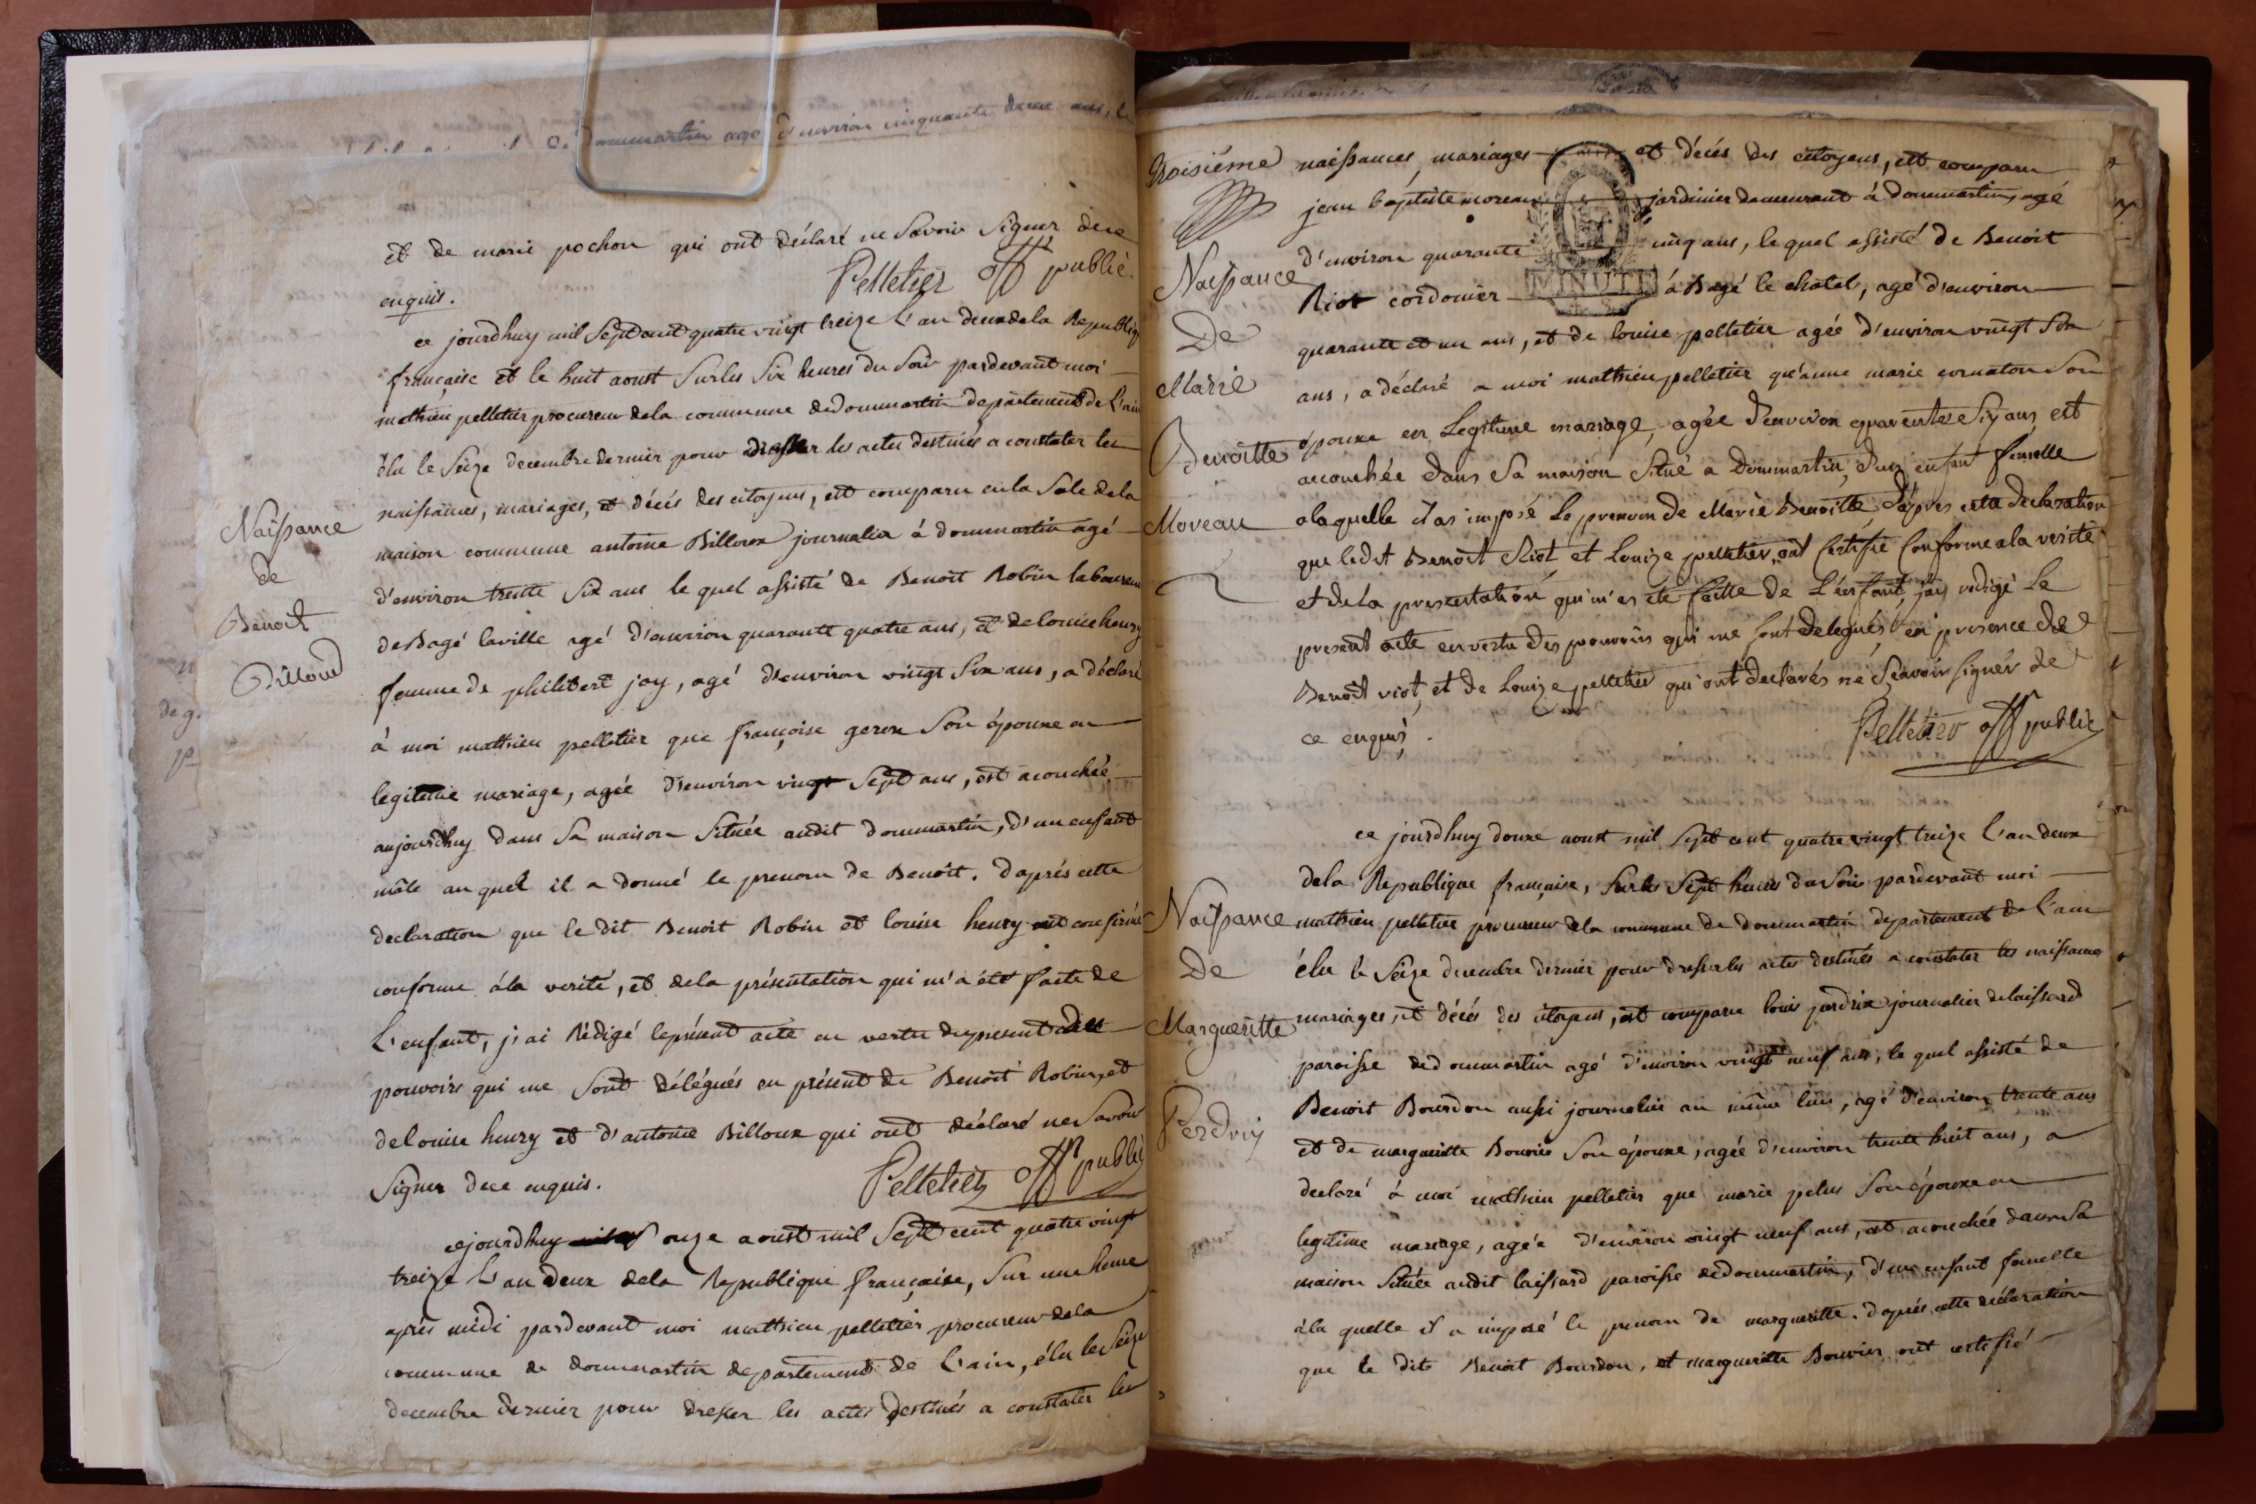 Dommartin agé d'environ cinquante deux ans, et
et de marie pochon qui ont déclaré ne Savoir Signer dece
enquis.
Pelletier off public.
ce jourdhuy mil Sept cent quatre vingt treize L'an deux dela Republiq
française et le huit aoust Surles Six heures du Soir pardevant moi
mathieu pelletier procureur dela commune dedommartin departement de L'ain
élu le Seize decembre dernier pour dresser les actes destinés a constater les
naissances, mariages, et décés des citoyens, est comparu en la Sale dela
maison commune antoine Billoux journalier à dommartin agé
d'environ trente Six ans le quel assisté de Benoit Robin laboureur
de Bagé laville agé d'environ quarante quatre ans, et de louise henry
femme de philibert joy, agé d'environ vingt Six ans, a déclaré
à moi mathieu pelletier que françoise gerox Son épouxe en
legitime mariage, agée d'environ vingt Sept ans, est acouchée
aujourdhuy dans Sa maison Située audit dommartin, d'un enfant
mâle au quel il a donné le prenom de Benoit. daprés cette
declaration que le dit Benoit Robin et louise henry ont confirmé
conforme à la verité, et dela présentation qui m'a été faite de
L'enfant, j'ai Rédigé leprésent acte en vertu
pouvoirs qui me Sont délégués en présent de Benoit Robin, et
delouise henry et d'antoine Billoux qui ont déclaré ne Savoir
Signer dece enquis.
Pelletier off public
cejourdhuy onze aoust mil Sept cent quatre vingt
treize L'an deux dela Republique française, Sur une heure
aprés midi pardevant moi mathieu pelletier procureur dela
commune de dommartin departement de L'ain, élu le Seize
decembre dernier pour dresser les actes destinés a constater les
Naissance
de
Benoit
Billoud
Troisiéme
naissances, mariages et décés des citoyens, est comparu
jean baptiste moreau jardinier demeurant à dommartin, agé
d'environ quarante cinq ans, le quel assisté de Benoit
MINUTE
Riot cordonier à Bagé le chatel, agé d'environ
quarante et un ans, et de louise pelletier agée d'environ vingt Six
ans, a déclaré a moi mathieu pelletier qu'anne marie cornaton Son
épouxe en Legitime mariage, agée d'environ quarente Six ans, est
acouchée dans Sa maison Situé a Dommartin, d'un enfant femelle
alaquelle il as imposé Le prenom de Marie Benoitte D'apres cette declaration
que ledit Benoit Riot et Louize pelletier, ont Certifié Conforme ala verité
et dela presentation qui m'as été faitte de L'enfant, jais redigé Le
present acte en vertu des pouvoirs qui me sont delegués, en presence de
Benoit riot, et de Louize pelletier qui ont declarés ne Scavoir signér de
ce enquis.
Pelletier off public
Naissance
De
Marie
Benoitte
Moreau
ce jourdhuy douxe aoust mil Sept cent quatre vingt treize l'an deux
dela Republique française, Surles Sept heures du Soir pardevant moi
mathieu pelletier procureur dela commune de dommartin departement de l'ain
élu le Seize decembre dernier pour dresser les actes destinés a constater les naissances
mariages, et décés des citoyens, est comparu louis perdrix journalier delaissard
paroisse dedommartin agé d'environ vingt neuf ans, le quel assisté de
Benoit Bourdon aussi journalier au même lieu, agé d'environ trente ans
et de margueritte Bouvier Son épouxe, agée d'environ trente huit ans, a
declaré à moi mathieu pelletier que marie pelus Son épouxe en
legitime mariage, agée d'environ vingt neuf ans, est acouchée dans Sa
maison Située audit laissard paroisse dedommartin, d'un enfant femelle
à la quelle il a imposé le prenom de margueritte. daprés cette declaration
que le dit Benoit Bourdon, et margueritte Bouvier ont certifié
Naissance
De
Margueritte
Perdrix